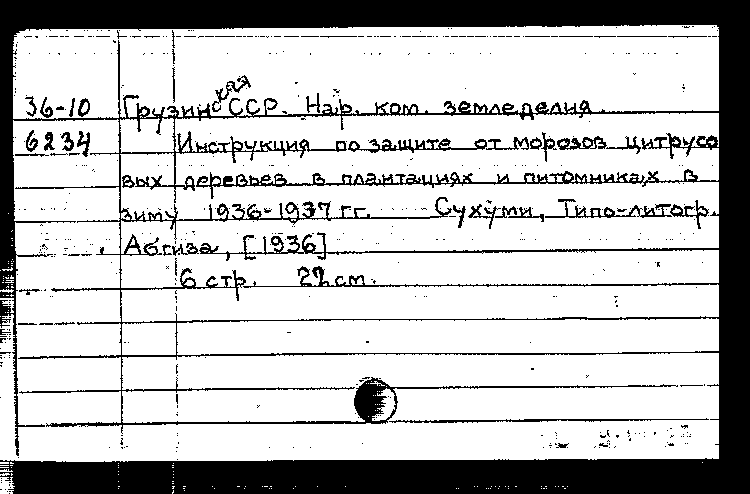 36-10 Грузинская ССР. Нар. ком. земледелия
6234 Инструкция по защите от морозов цитрусо
вых деревьев в плантациях и питомниках в
зиму 1936-1937 гг. Сухуми, Типо-литогр.
Абгиза, [1936]
6 стр. 22 см.